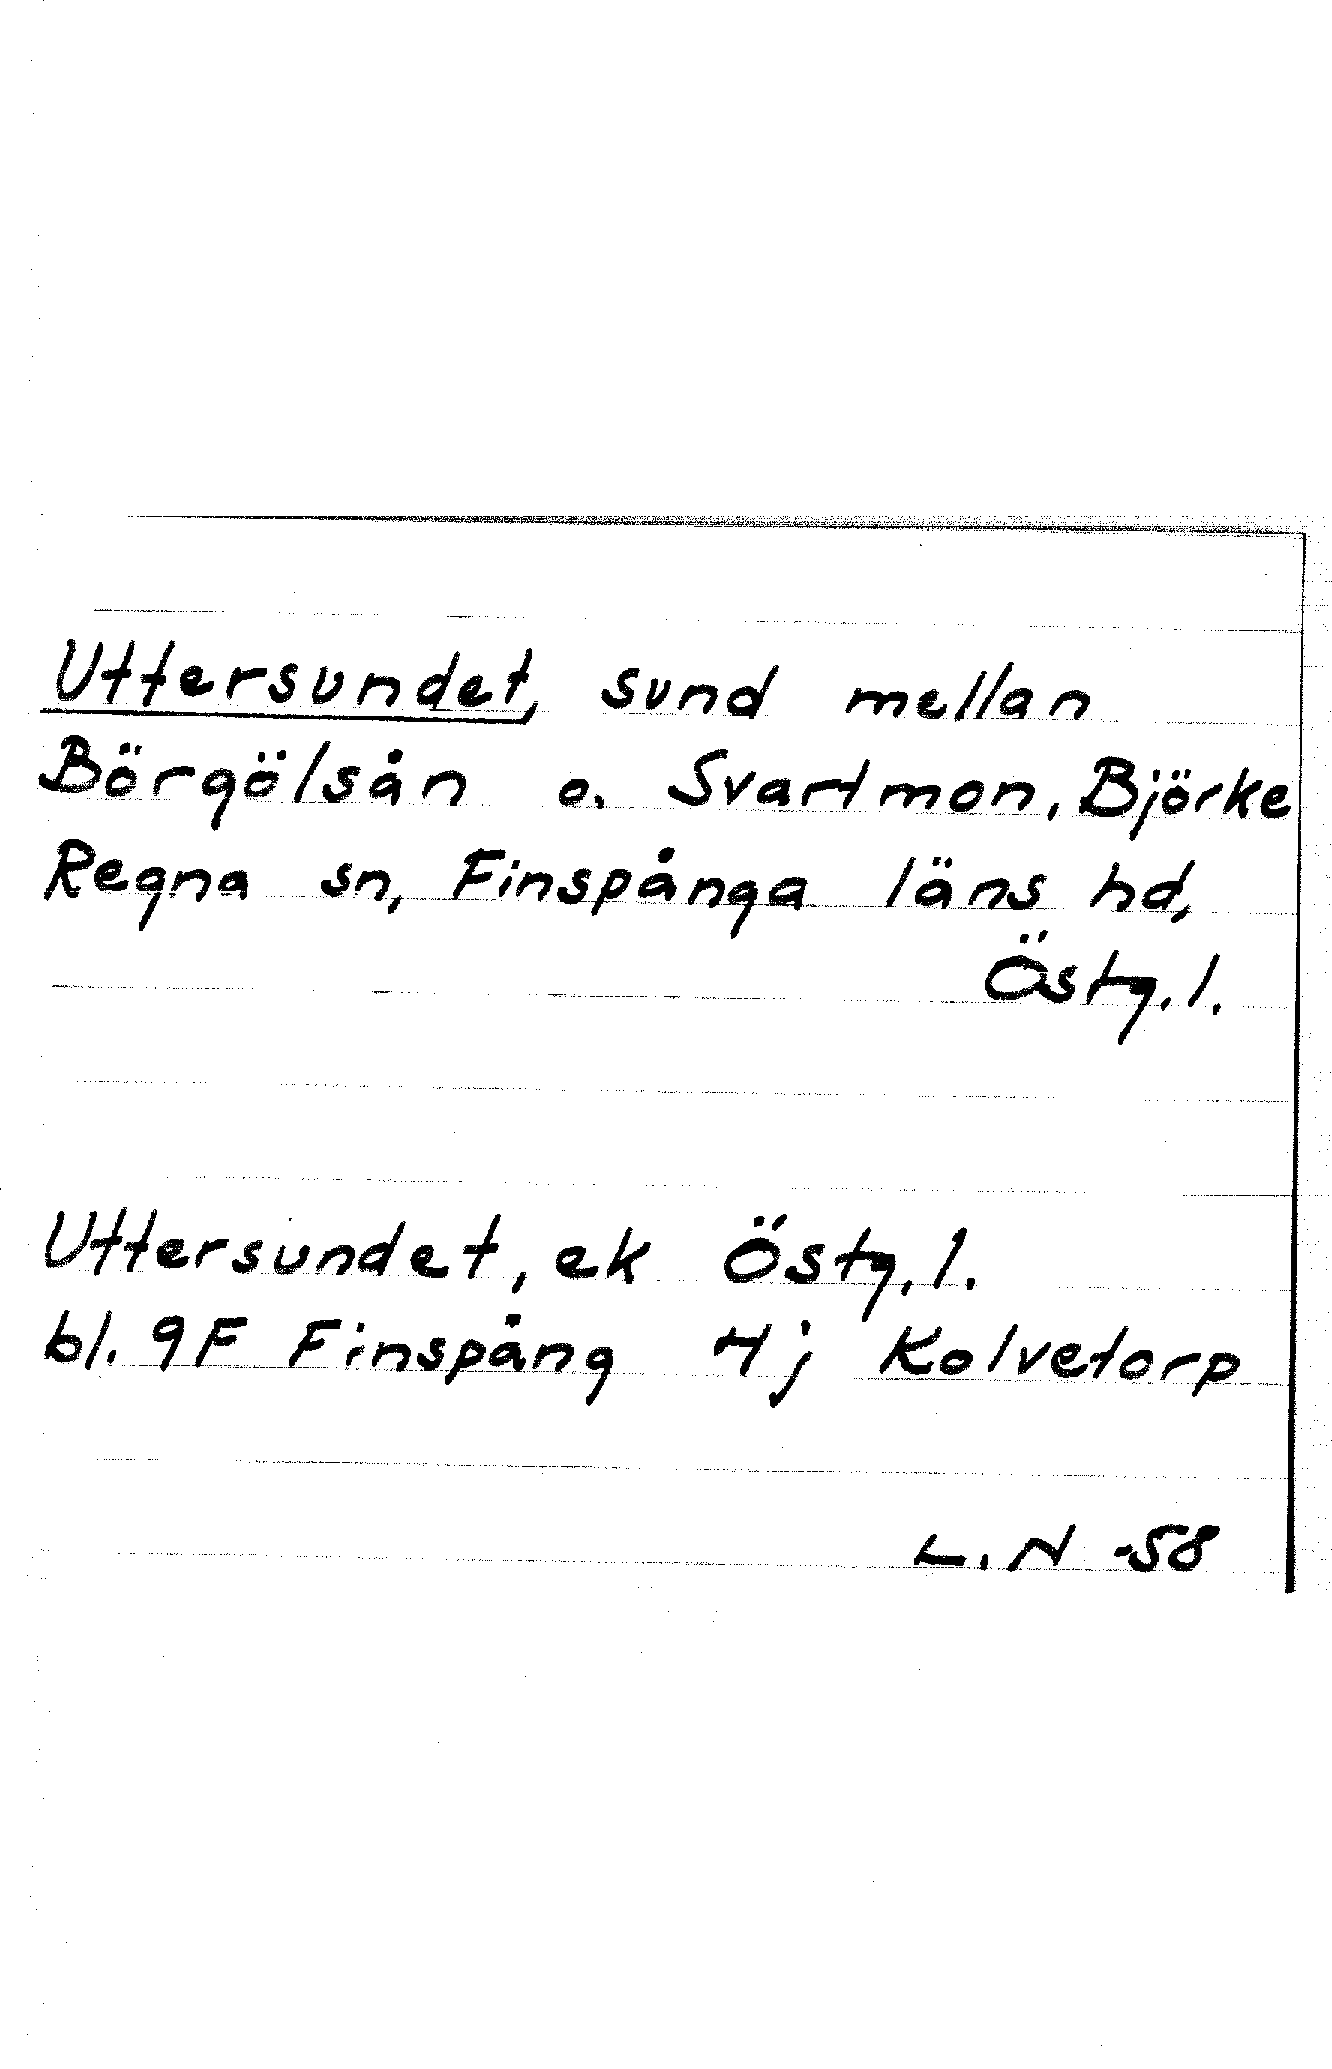 Uttersundet, sund mellan
Börgölsån o. Svartmon, Björke
Regna sn, Finspånga läns hd,
Östg. l.
Uttersundet, ek Östg. l.
bl. 9F Finspång 4j Kolvetorp
L. N -58